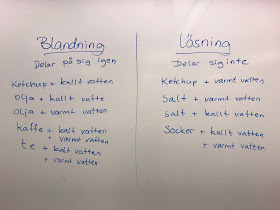 Blandning
Delar på sig igen
Ketchup + kallt vatten
olja + kallt vatte
olja + varmt vatten
kaffe + kallt vatten
+ varmt vatten
te + kalt vatten
+ varmt vatten
Lösning
Delar sig inte
Ketchup + varmt vatten
Salt + varmt vatten
salt + kallt vatten
Socker + kallt vatten
+ varmt vatten